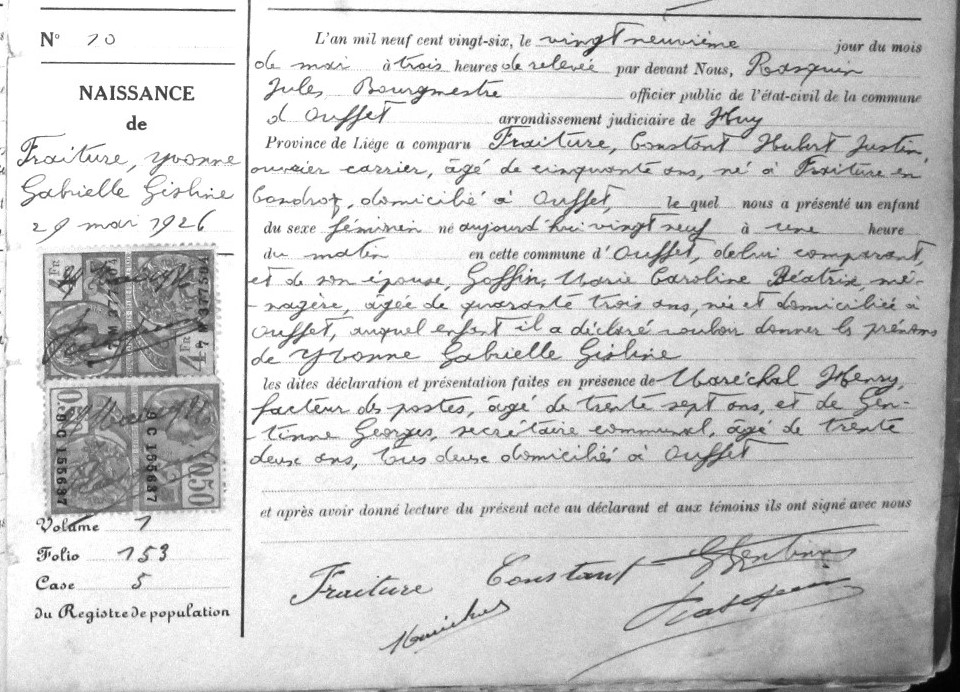 N° 10
NAISSANCE
de
Fraiture, Yvonne
Gabrielle Gisline
29 mai 1926
4 FR
4 FR
M 377504
7 M 377504
0.50
0.50
8C 155637
8C 155637
Volume 1
Folio 153
Case 5
du Registre de population
L'an mil neuf cent vingt-six, le vingt neuvième jour du mois
de mai à trois heures de relevée par devant Nous, Rasquin
Jules Bourgmestre officier public de l'état-civil de la commune
d Ouffet arrondissement judiciaire de Huy
Province de Liége a comparu Fraiture, Constant Hubert Justin,
ouvrier carrier, âgé de cinquante ans, né à Fraiture en
Condroz, domicilié à Ouffet, le quel nous a présenté un enfant
du sexe féminin né aujourd'hui vingt neuf à une heure
du matin en cette commune d'Ouffet, de lui comparant,
et de son épouse, Goffin, Marie Caroline Béatrix, mé-
-nagère, âgée de quarante trois ans, née et domiciliée à
Ouffet, auquel enfant il a déclaré vouloir donner les prénoms
de Yvonne Gabrielle Gisline
les dites déclaration et présentation faites en présence de Maréchal Henry,
facteur des postes, âgé de trente sept ans, et de Gen-
-tinne Georges, secrétaire communal, âgé de trente
deux ans, tous deux domiciliés à Ouffet
et après avoir donné lecture du présent acte au déclarant et aux témoins ils ont signé avec nous
Fraiture Constant G Gentinne